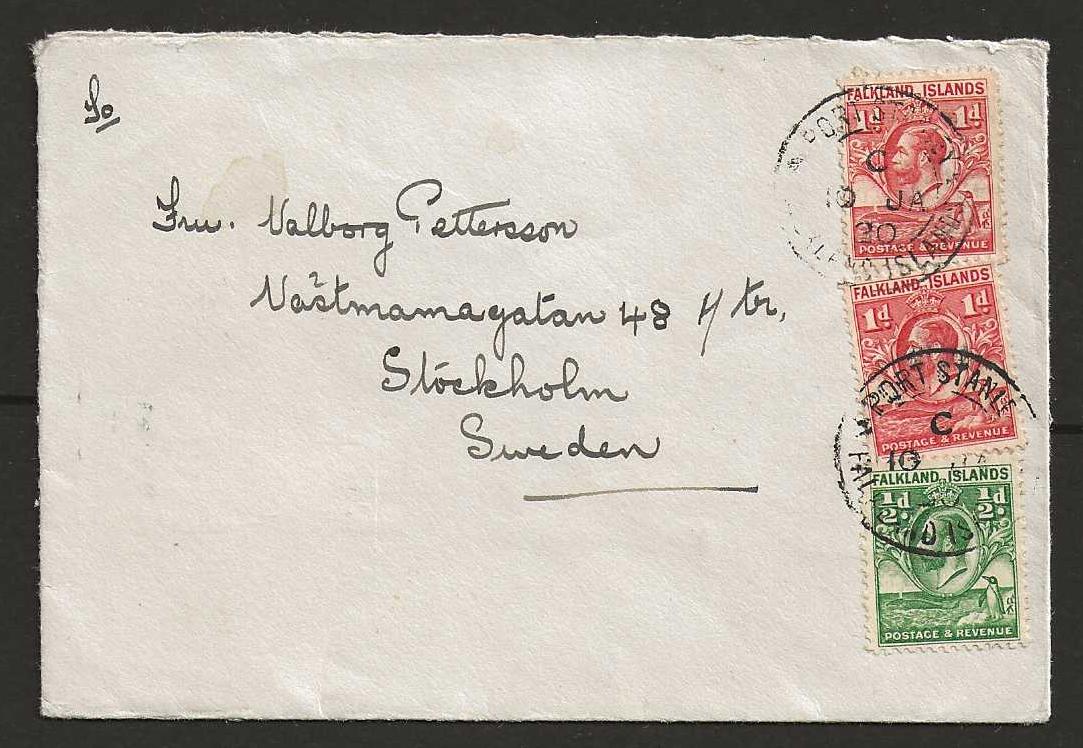 To
Fru. Valborg Pettersson
Västmamagatan 48 1/ tr,
Stöckholm
Sweden
FALKLAND ISLANDS
1d 1d
POSTAGE & REVENUE
PORT STANLEY
C
10 JA
30
FALKLAND ISLANDS
FALKLAND ISLANDS
1d 1d
POSTAGE & REVENUE
PORT STANLEY
C
10 JA
FALKLAND ISLANDS
½d ½d
POSTAGE & REVENUE